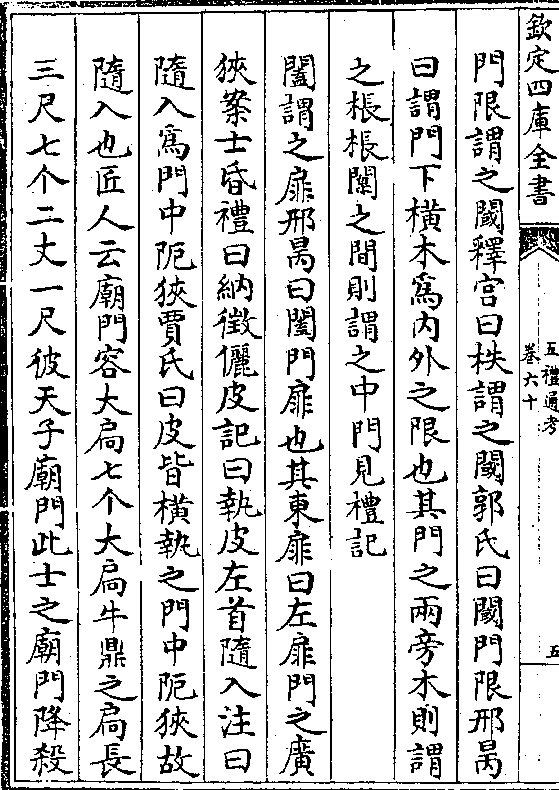 欽定四庫全書
五禮通考
卷六十
五
門限謂之閾釋宫曰柣謂之閾郭氏曰閾門限邢昺
曰謂門下橫木爲内外之限也其門之兩旁木則謂
之棖棖闑之間則謂之中門見禮記
闔謂之扉邢昺曰闔門扉也其東扉曰左扉門之廣
狹案士昏禮曰納徵儷皮記曰執皮左首隨入注曰
隨入爲門中阨狹賈氏曰皮皆橫執之門中阨狹故
隨入也匠人云廟門容大扃七个大扃牛鼎之扃長
三尺七个二丈一尺彼天子廟門此士之廟門降殺